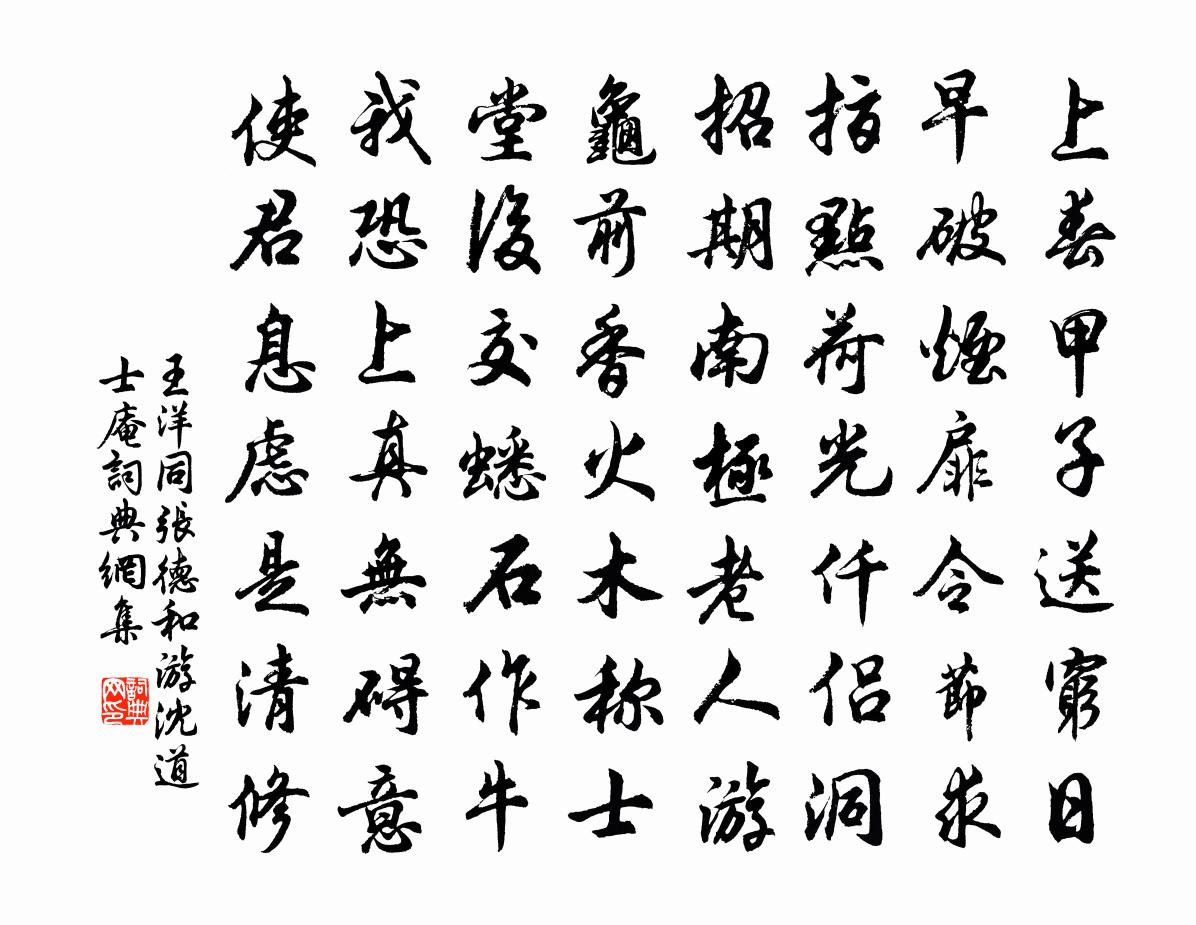 上春甲子送窮日
早破煙扉令節求
指點荷光仟侶洞
招期南極老人游
龜前香火木称士
堂後交蟠石作牛
我恐上真無碍意
使君息慮是清修
王洋同張德和游沈道
士庵詞典網集
詞典
网印